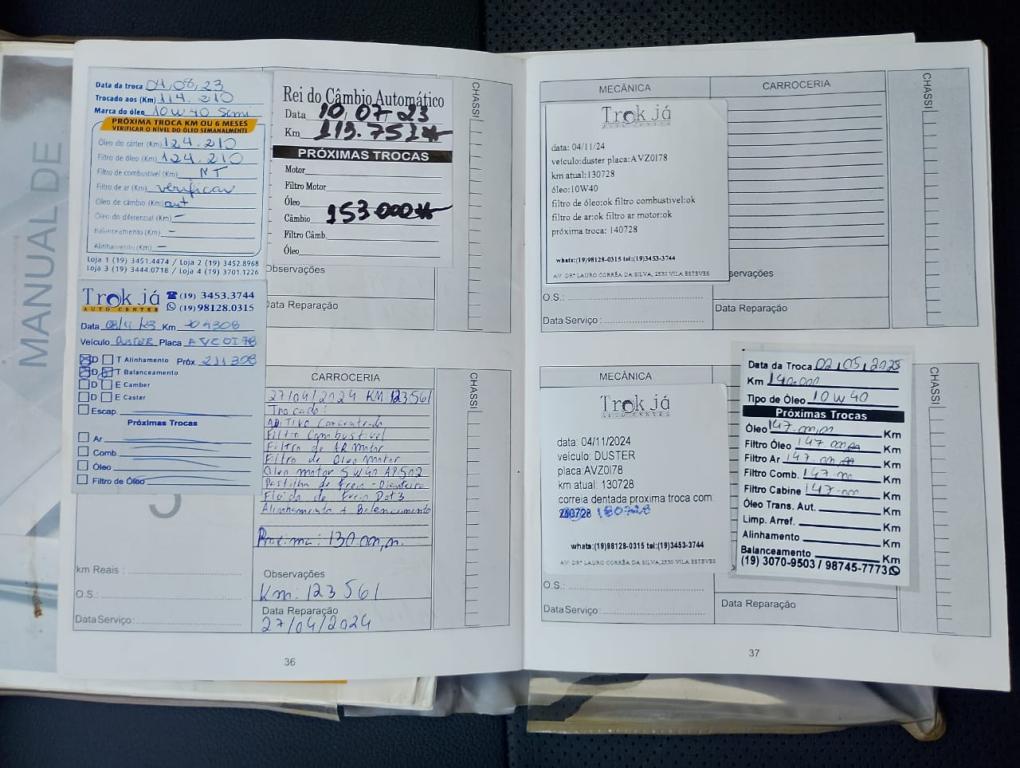 MANUAL DE
Data da troca 01,08,23
Trocado aos (Km) 114.210
Marca do óleo 10W40 Semi
PRÓXIMA TROCA KM OU 6 MESES
VERIFICAR O NÍVEL DO ÓLEO SEMANALMENTE
Óleo do cárter (Km) 124.210
Filtro de óleo (Km) 124.210
Filtro de combustível (Km) NT
Filtro de ar (Km) verificar
Óleo de câmbio (Km) aut
Óleo do diferencial (Km) –
Balanceamento (Km) –
Alinhamento (Km) –
Loja 1 (19) 3451.4474 / Loja 2 (19) 3452.8968
Loja 3 (19) 3444.0718 / Loja 4 (19) 3701.1226
Rei do Câmbio Automático
Data 10/07/23
Km 113.751
PRÓXIMAS TROCAS
Motor
Filtro Motor
Óleo
Câmbio 153.000
Filtro Câmb.
Óleo
CHASSI
Observações
Data Reparação
Trok já
AUTO CENTER
(19) 3453.3744
(19) 98128.0315
Data Km
Veículo DUSTER Placa
D T Alinhamento Próx
D T Balanceamento
D E Camber
D E Caster
Escap.
Próximas Trocas
Ar
Comb
Óleo
Filtro de Óleo
km Reais :
O.S.:
Data Serviço:
CARROCERIA
27/04/2024 KM 123561
Trocado:
Aditivo Concentrado
Filtro Combustivel
Filtro de AR Motor
Filtro de Oleo Motor
Óleo motor 5W40 AP502
Pastilha de Freio - Dianteira
Fluido de Freio Dot3
Alinhamento + Balanceamento
Proxima: 130.m,m.
Observações
Km: 123561
Data Reparação
27/04/2024
CHASSI
36
MECÂNICA
Trok já
AUTO CENTER
data: 04/11/24
veiculo:duster placa:AVZ0I78
km atual:130728
óleo:10W40
filtro de óleo:ok filtro combustivel:ok
filtro de ar:ok filtro ar motor:ok
próxima troca: 140728
whats:(19)98128-0315 tel:(19)3453-3744
AV. DRº LAURO CORRÊA DA SILVA, 2530 VILA ESTEVES
O.S.:
Data Serviço :
CARROCERIA
servações
Data Reparação
CHASSI
MECÂNICA
Trok já
AUTO CENTER
data: 04/11/2024
veículo: DUSTER
placa:AVZ0I78
km atual: 130728
correia dentada proxima troca com
180728
whats:(19)98128-0315 tel:(19)3453-3744
AV. DRº LAURO CORRÊA DA SILVA, 2530 VILA ESTEVES
O.S.:
Data Serviço:
Data da Troca 02,05,2025
Km 140.000
Tipo de Óleo 10W40
Próximas Trocas
Óleo 147.m,m Km
Filtro Óleo 147.m,m Km
Filtro Ar 147.m,m Km
Filtro Comb. 147.m Km
Filtro Cabine 147.m Km
Óleo Trans. Aut. Km
Limp. Arref. Km
Alinhamento Km
Balanceamento Km
(19) 3070-9503 / 98745-7773
Data Reparação
CHASSI
37